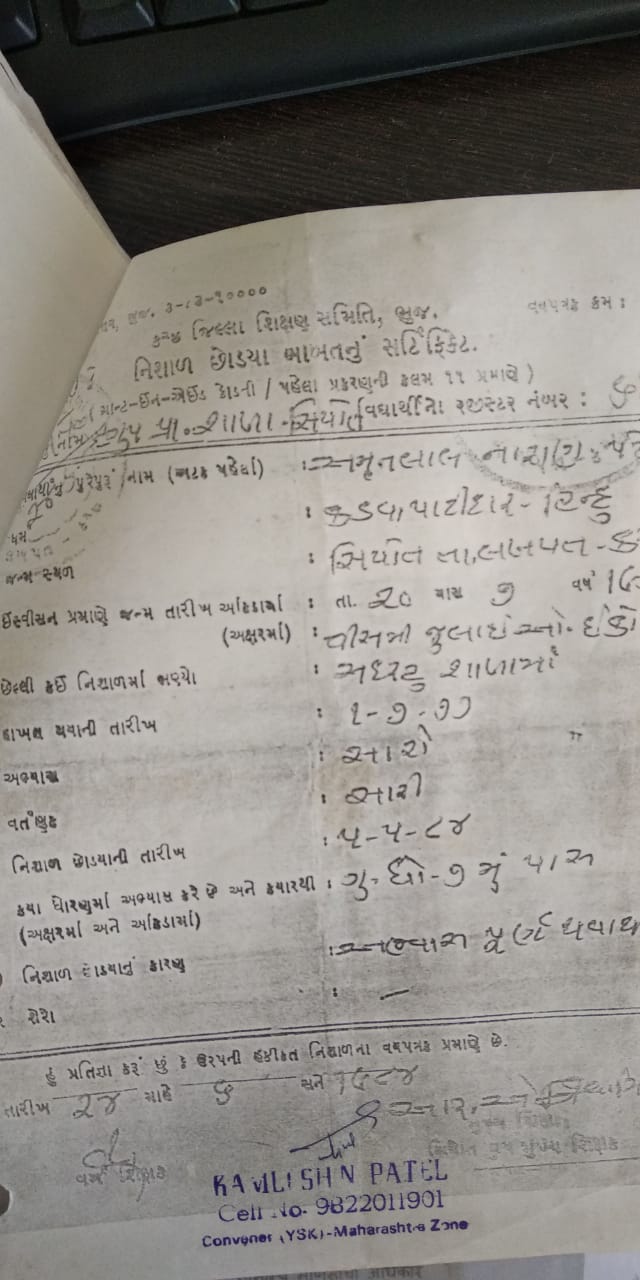 ભુજ. ૩-૮૩-૧૦૦૦૦
વયપત્રક ક્રમ :
કચ્છ જિલ્લા શિક્ષણ સમિતિ, ભુજ.
નિશાળ છોડયા બાબતનું સર્ટિફિકેટ.
( ગ્રાન્ટ-ઈન-એઈડ કોડની / પહેલા પ્રકરણની કલમ ૧૧ પ્રમાણે )
પ્રા. શાળા - સિયોત વિદ્યાર્થીનો રજીસ્ટર નંબર :
પુરેપુરૂં નામ (અટક પહેલાં) : અમૃતલાલ નારાણ
ધર્મ : કડવા પાટીદાર - હિન્દુ
જન્મ સ્થળ : સિયોત તા. લખપત -
ઈસ્વીસન પ્રમાણે જન્મ તારીખ આંકડામાં : તા. ૨૦ માસ ૭ વર્ષ
(અક્ષરમાં) : વીસમી જુલાઈ
છેલ્લી કઈ નિશાળમાં ભણ્યો : શાળામાં
દાખલ થયાની તારીખ : ૧-૭-૭૭
અભ્યાસ : સારો
વર્તણુક : સારી
નિશાળ છોડયાની તારીખ : ૫-૫-૮૪
કયા ધોરણમાં અભ્યાસ કરે છે અને કયારથી : ગુ. ધો - ૭ મું પાસ
(અક્ષરમાં અને આંકડામાં)
નિશાળ છોડયાનું કારણ : અભ્યાસ પૂર્ણ થવાથી
શેરો : —
હું પ્રતિજ્ઞા કરૂં છું કે ઉપરની હકીકત નિશાળના વયપત્રક પ્રમાણે છે.
તારીખ ૨૪ માહે ૬ સને ૧૯૮૪
વર્ગ શિક્ષક
મુખ્ય શિક્ષક
KAMLESH N PATEL
Cell No. 9822011901
Convener (YSK)-Maharashtra Zone